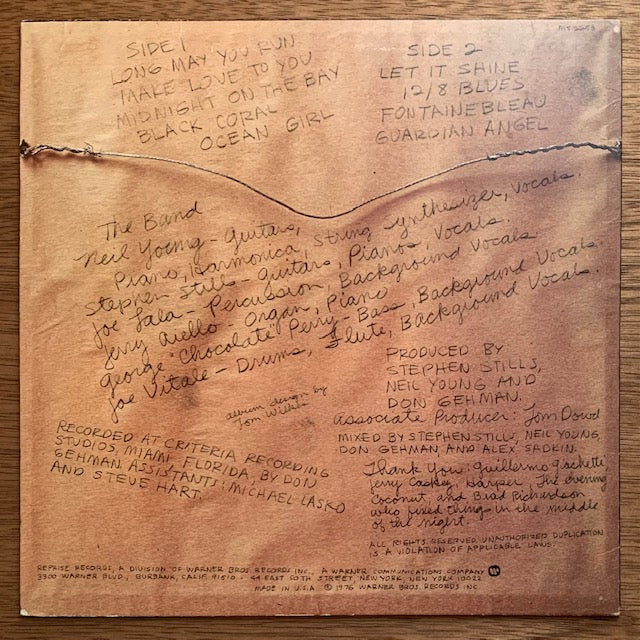 MS 2253
SIDE 1
LONG MAY YOU RUN
MAKE LOVE TO YOU
MIDNIGHT ON THE BAY
BLACK CORAL
OCEAN GIRL
SIDE 2
LET IT SHINE
12/8 BLUES
FONTAINEBLEAU
GUARDIAN ANGEL
The Band
Neil Young - Guitars,
Piano, Harmonica, String Synthesizer, Vocals.
Stephen Stills - Guitars, Pianos, Vocals.
Joe Lala - Percussion, Background Vocals
Jerry Aiello - Organ, Piano
George "Chocolate" Perry - Bass, Background Vocals.
Joe Vitale - Drums, Flute, Background Vocals.
album design by
Tom Wilkes
PRODUCED BY
STEPHEN STILLS,
NEIL YOUNG AND
DON GEHMAN.
Associate Producer: Tom Dowd
MIXED BY STEPHEN STILLS, NEIL YOUNG,
DON GEHMAN AND ALEX SADKIN.
RECORDED AT CRITERIA RECORDING
STUDIOS, MIAMI FLORIDA, BY DON
GEHMAN. ASSISTANTS: MICHAEL LASKO
AND STEVE HART.
Thank You: Guillermo Giachetti,
Jerry Caskey, Harper, The evening
Coconut, and Brad Richardson
who fixed things in the middle
of the night.
ALL RIGHTS RESERVED. UNAUTHORIZED DUPLICATION
IS A VIOLATION OF APPLICABLE LAWS.
REPRISE RECORDS, A DIVISION OF WARNER BROS. RECORDS INC., A WARNER COMMUNICATIONS COMPANY
3300 WARNER BLVD., BURBANK, CALIF. 91510 · 44 EAST 50TH STREET, NEW YORK, NEW YORK 10022
MADE IN U.S.A. © 1976 WARNER BROS. RECORDS INC.